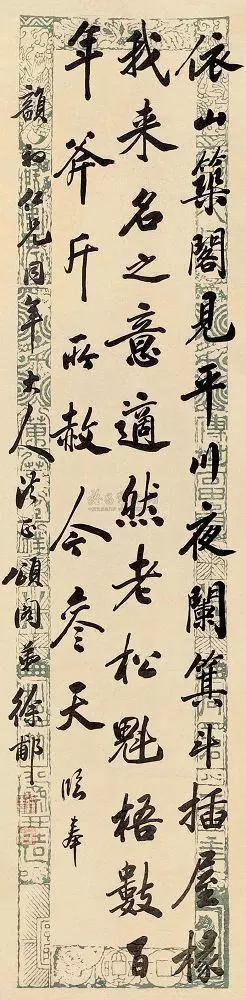 依山築閣見平川夜闌箕斗插屋椽
我来名之意適然老松魁梧數百
年斧斤所赦今參天臨奉
韻初仁兄同年大人法正頌閣弟徐郙